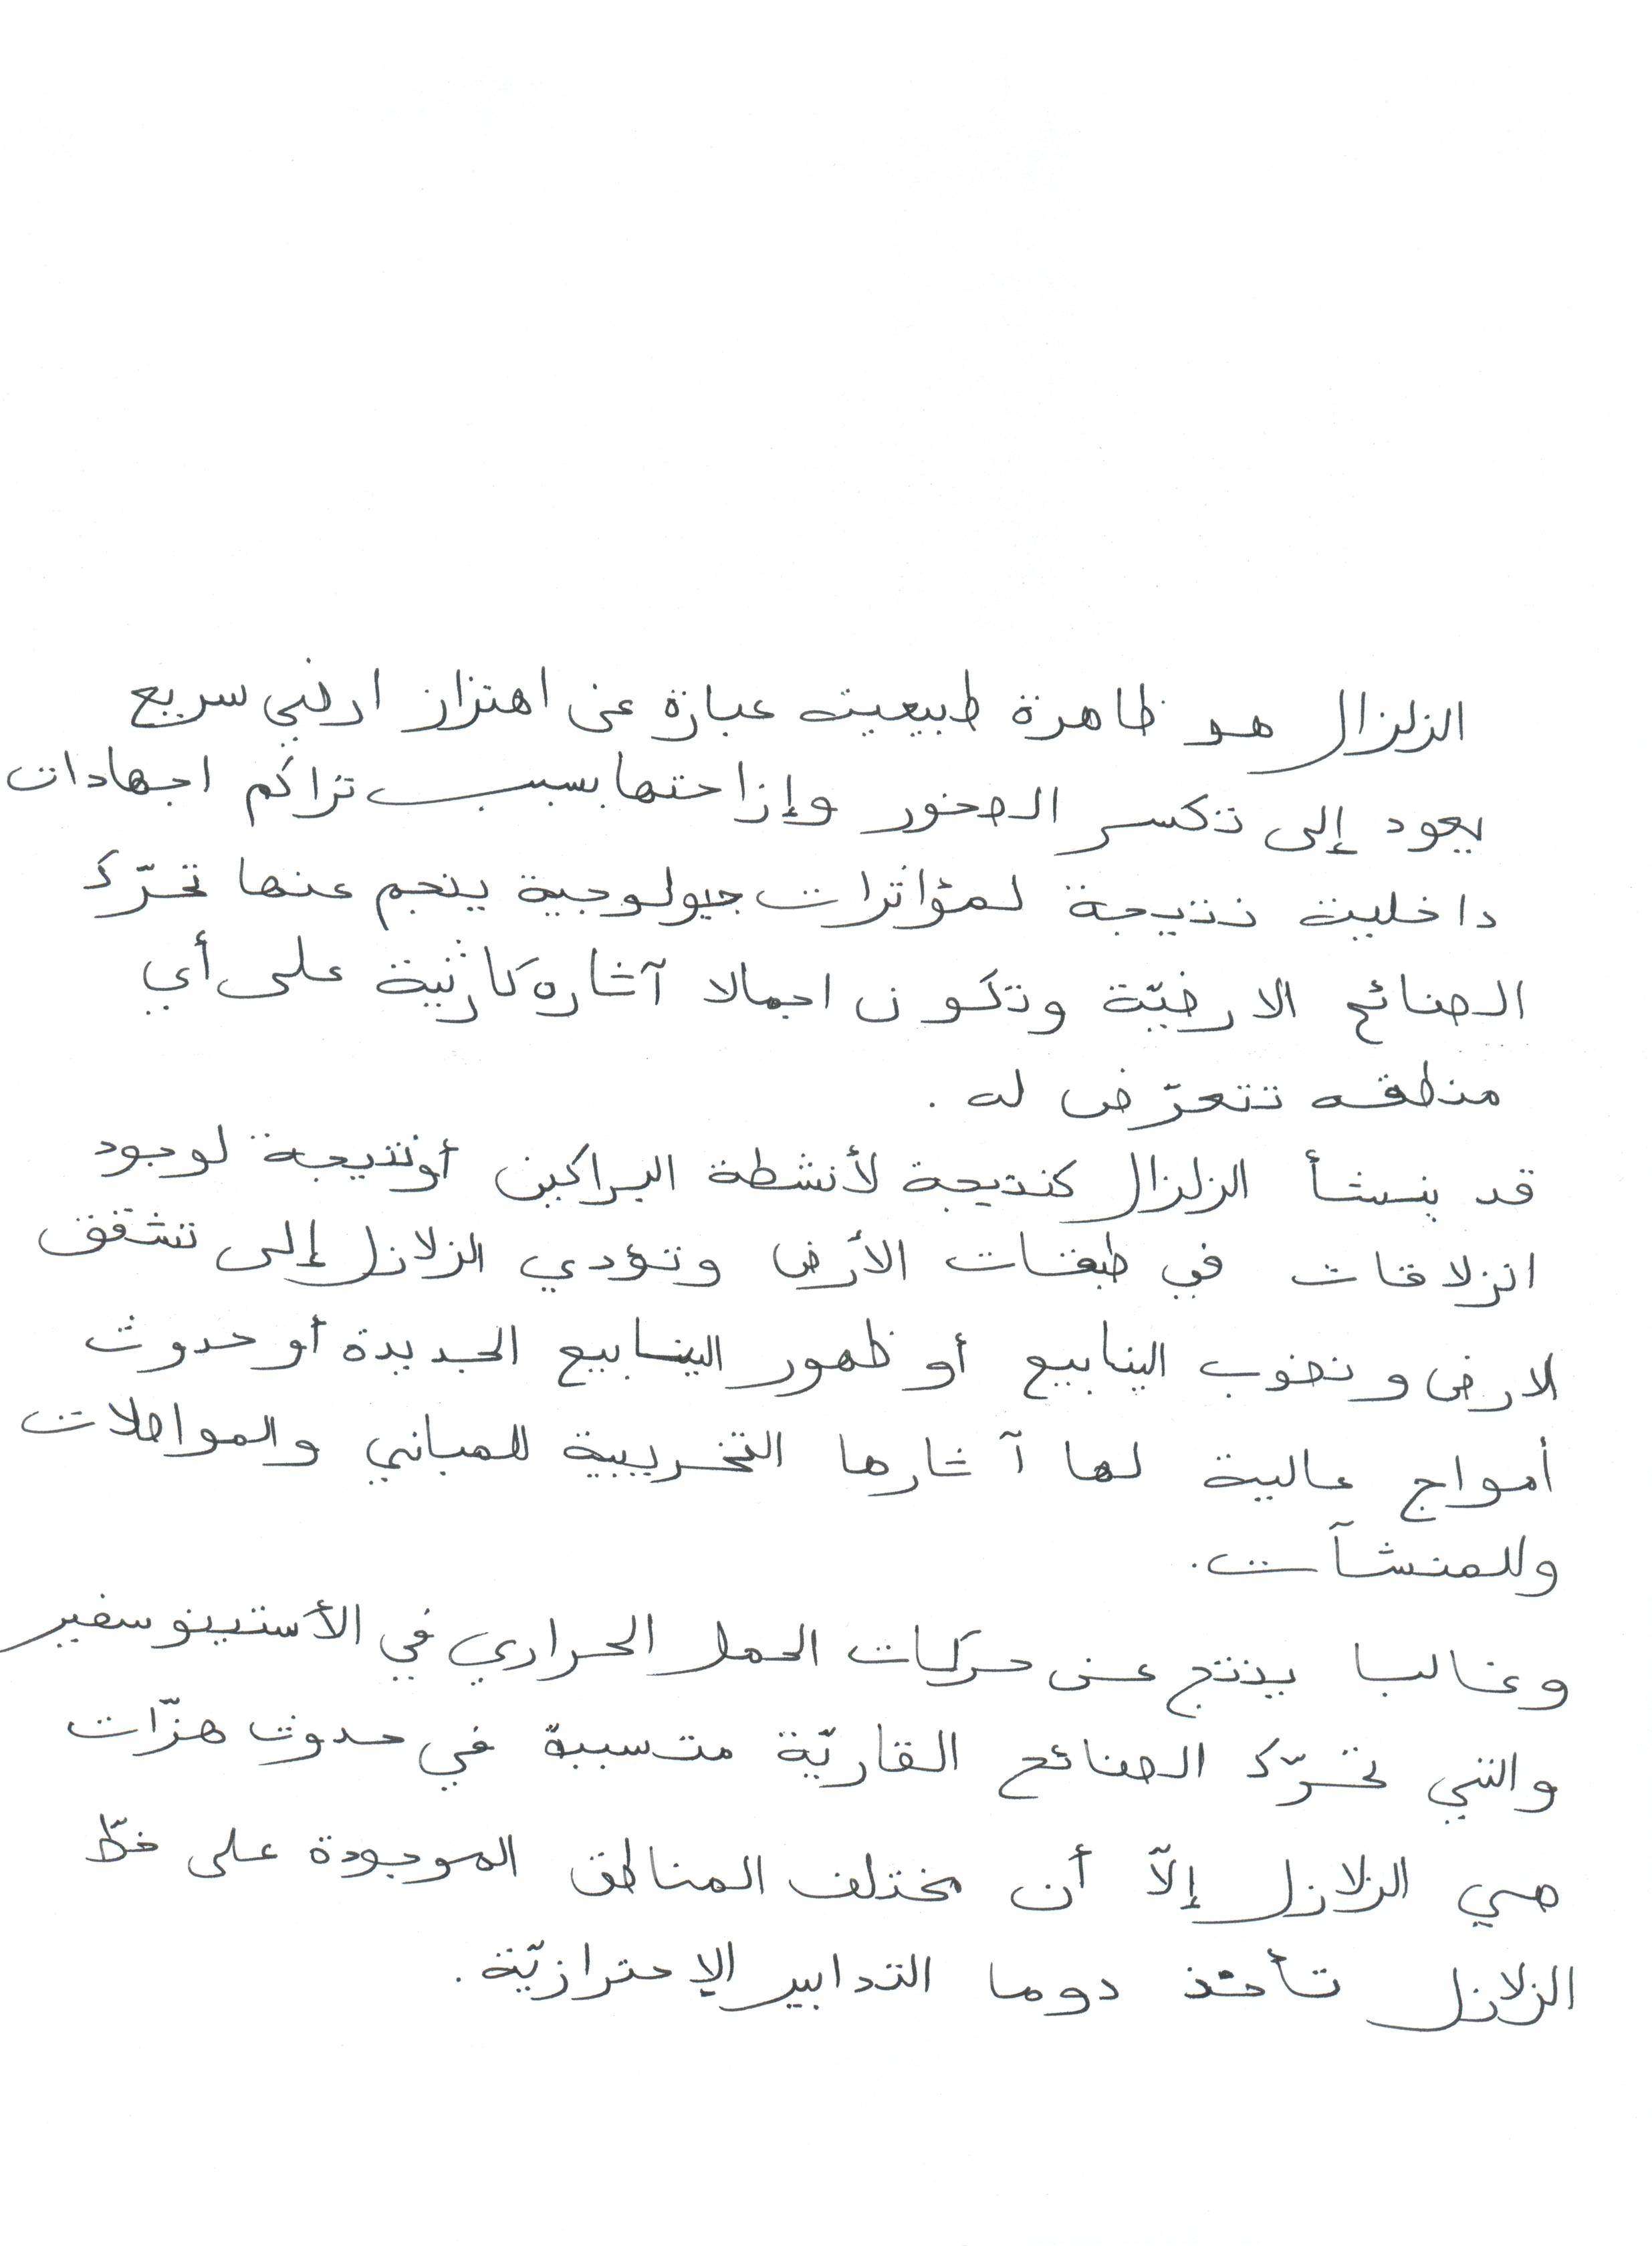 الزلزال هو ظاهرة طبيعية عبارة عن اهتزاز ارضي سريع
يعود إلى تكسر الصخور وإزاحتها بسبب تراكم اجهادات
داخلية نتيجة لمؤاثرات جيولوجية ينجم عنها تحرّك
الصفائح الارضيّة وتكون اجمالا آثاره كارثية على أي
منطقه تتعرّض له .
قد ينشأ الزلزال كنتيجة لأنشطة البراكين أو نتيجة لوجود
انزلاقات في طبقات الأرض وتؤدي الزلازل إلى تشقق
الارض ونضوب الينابيع أو ظهور الينابيع الجديدة أو حدوث
أمواج عالية لها آثارها التخريبية للمباني والمواصلات
وللمنشآت.
وغالبا ينتج عن حركات الحمل الحراري في الأستينوسفير
والتي تحرّك الصفائح القاريّة متسببة في حدوث هزّات
هي الزلازل إلاّ أن مختلف المناطق الموجودة على خطّ
الزلازل تأخذ دوما التدابير الإحترازيّة .